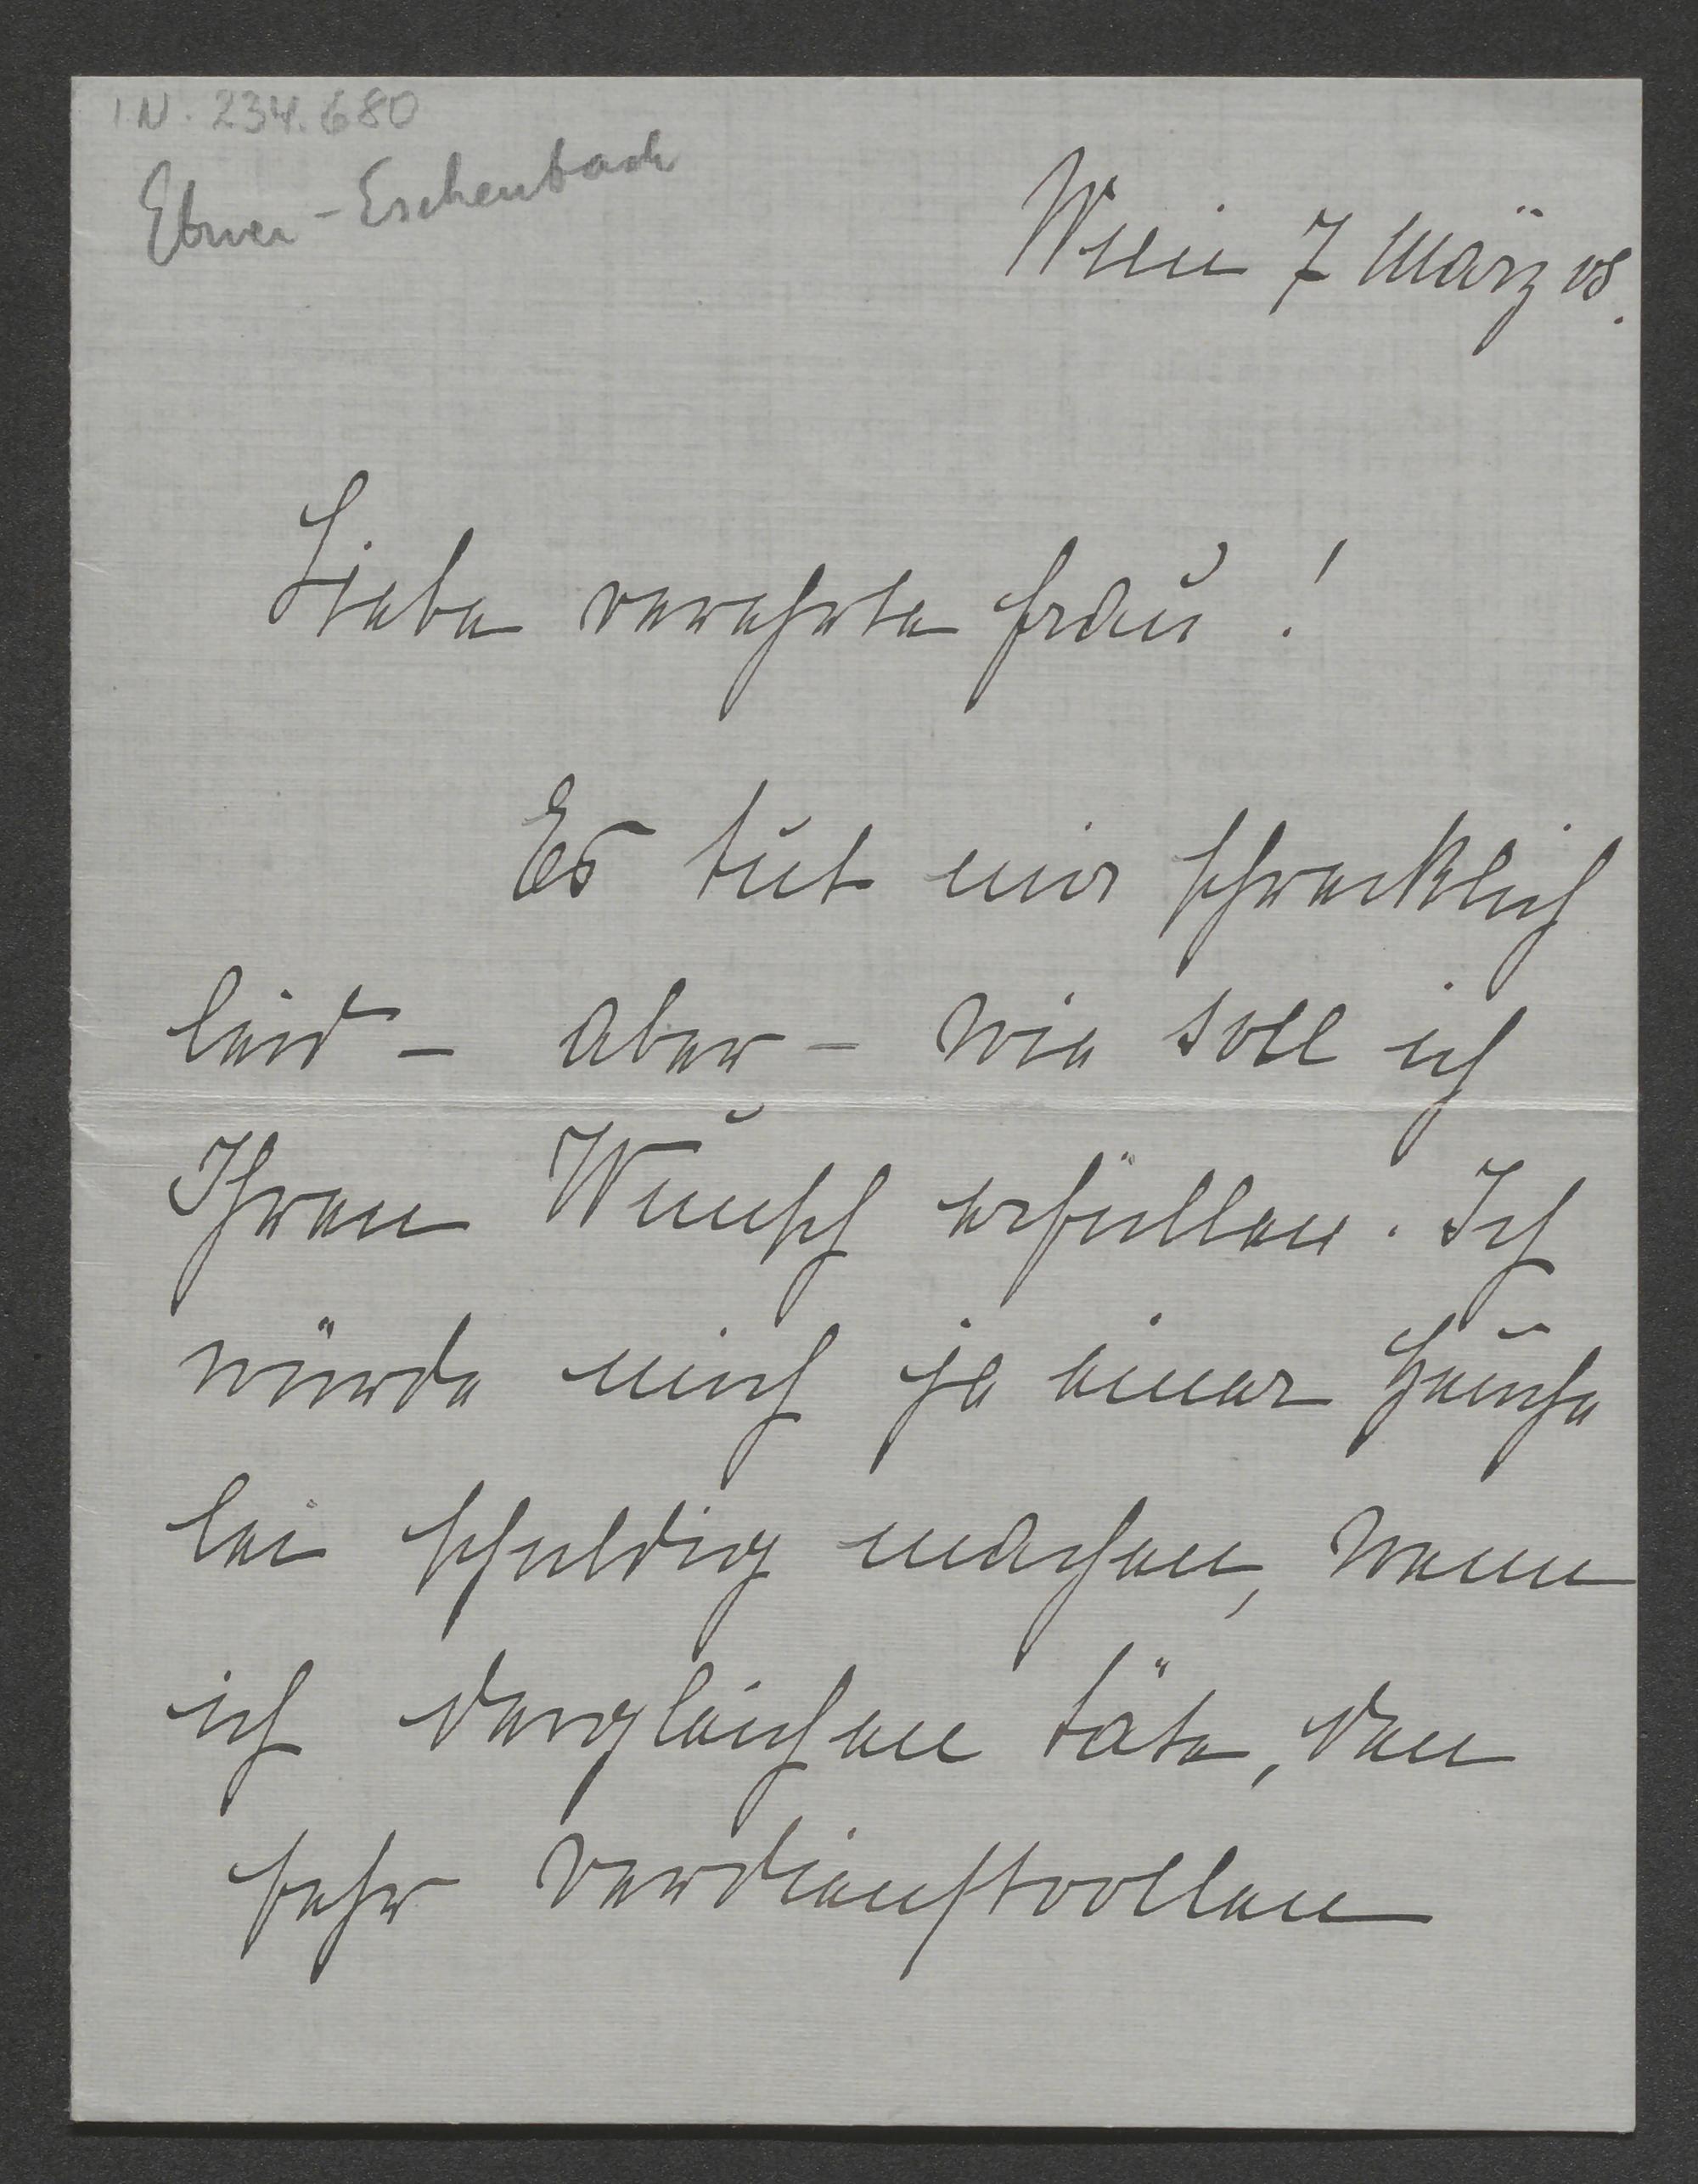 I.N. 234.680
Ebner-Eschenbach
Wien 7 März 08.
Liebe verehrte Frau!
Es tut mir schrecklich
leid – aber – wie soll ich
Ihren Wunsch erfüllen. Ich
würde mich ja einer Heuche
lei schuldig machen, wenn
ich dergleichen täte, den
sehr verdienstvollen